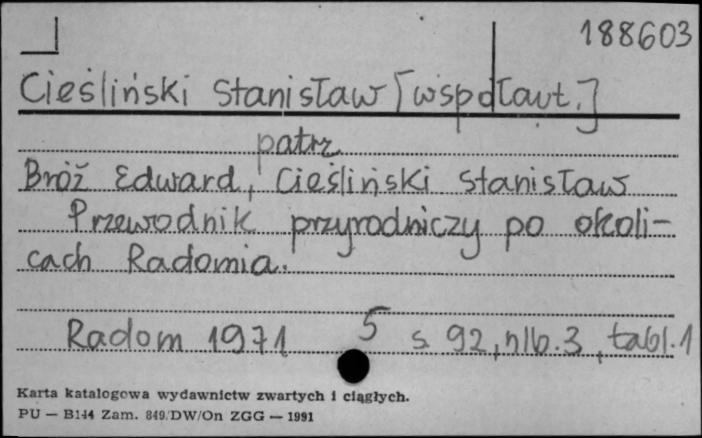 188603
Cieśliński Stanisław [współaut.]
patrz
Bróż Edward, Cieśliński Stanisław
Przewodnik przyrodniczy po okoli-
cach Radomia.
Radom 1971 5 s. 92, nlb. 3, tabl. 1
Karta katalogowa wydawnictw zwartych i ciągłych.
PU — B144 Zam. 849/DW/On ZGG — 1991